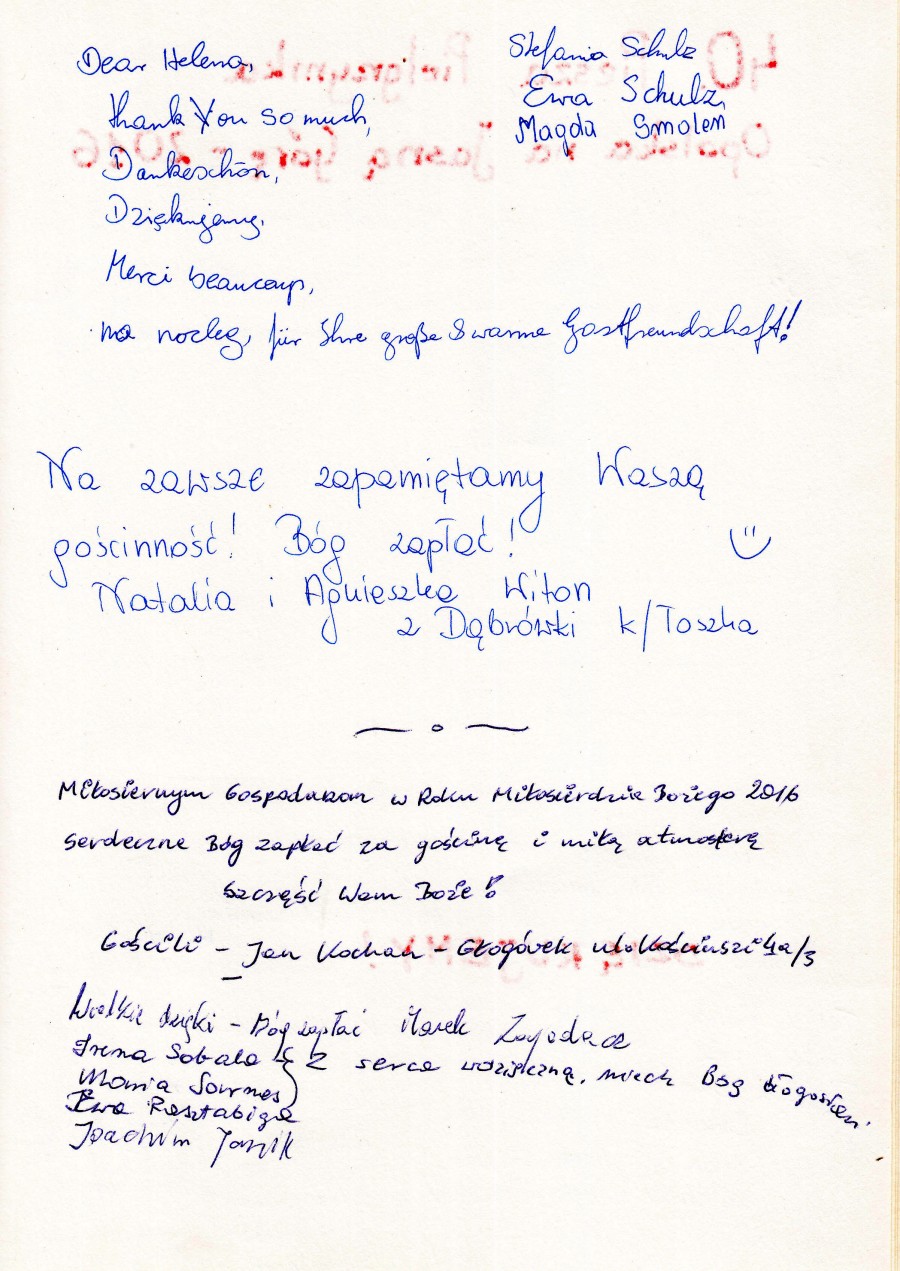 Dear Helena,
thank You so much,
Dankeschön,
Dziękujemy,
Merci beaucoup,
na nocleg, für Ihre große & warme Gastfreundschaft!
Stefania Schulz
Ewa Schulz,
Magda Smolen
Na zawsze zapamiętamy Waszą
gościnność! Bóg zapłać!
Natalia i Agnieszka Witon
z Dąbrówki k/Toszka
Miłosiernym Gospodarzom w Roku Miłosierdzia Bożego 2016
serdeczne Bóg zapłać za gościnę i miłą atmosferę
Szczęść Wam Boże!
Gościli – Jan Kochan – Głogówek ul. Kościuszki 4a/3
Wielkie dzięki – Bóg zapłać Marek
Irena Sobala z serca wdzięczną, niech Bóg błogosławi
Maria
Ewa
Joachim